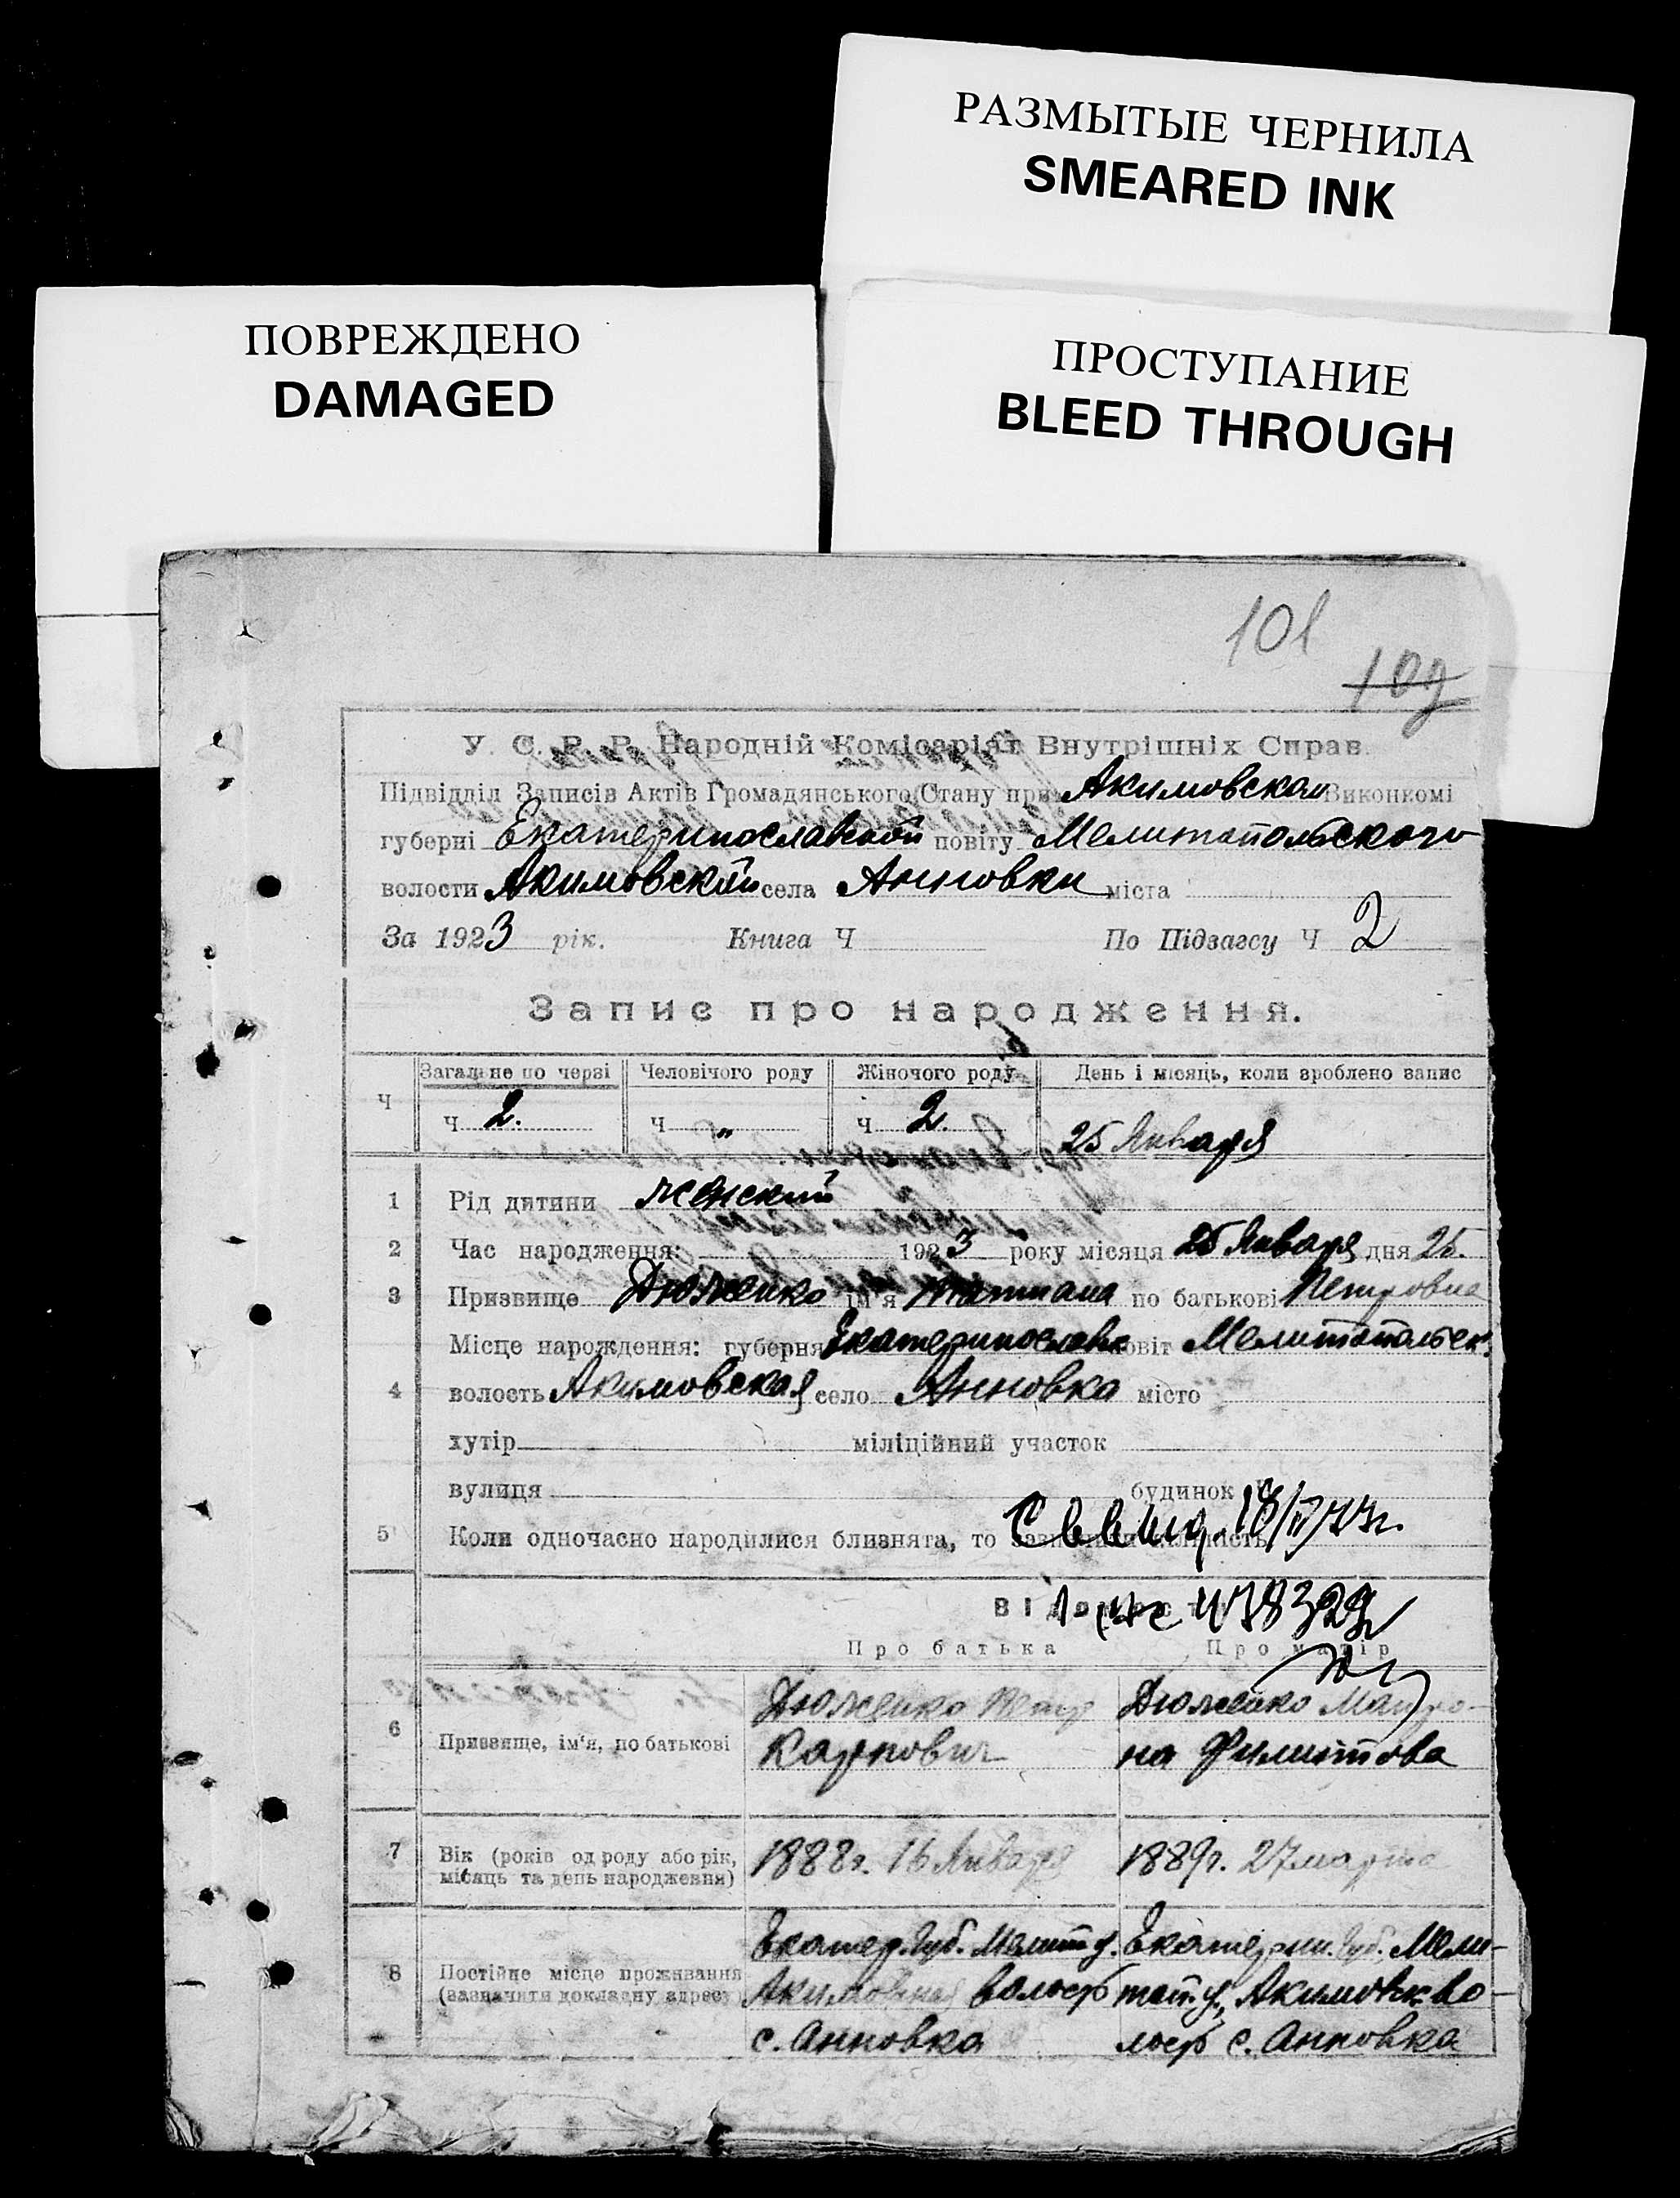 РАЗМЫТЫЕ ЧЕРНИЛА
SMEARED INK
ПОВРЕЖДЕНО
DAMAGED
ПРОСТУПАНИЕ
BLEED THROUGH
101
109
У. С. Р. Р. Народній Комісаріят Внутрішніх Справ.
Підвідділ Записів Актів Громадянського Стану при Акимовском Виконкомі
губерні Екатеринославской повіту Мелитопольского
волости Акимовской села Анновки міста
За 1923 рік. Книга Ч По Підзагсу Ч 2
Запис про народження.
Ч Загальне по черзі Человічого роду Жіночого роду День і місяць, коли зроблено запис
Ч 2. Ч „ Ч 2. 25 Января
1 Рід дитини женский
2 Час народження: 1923 року місяця 25 Января дня 25.
3 Призвище Дюженко ім'я Татиана по батькові Петровна
Місце народження: губерня Екатеринославск повіт Мелитопольск.
4 волость Акимовская село Анновка місто
хутір міліційний участок
вулиця будинок
5 Коли одночасно народилися близнята, то
478329
Про батька Про матір
6 Призвище, ім'я, по батькові
Дюженко Петр
Карпович
Дюженко Матро-
на Филиппова
7 Вік (років од роду або рік, місяць та день народження)
1888г. 16 Января
1889г. 27 марта
8 Постійне місце проживання (зазначити докладну адресу)
Екатер. Губ. Мелит у.
Акимовская волость
с. Анновка
Екатерин. Губ. Мели-
топ. у., Акимовск. во-
лость с. Анновка